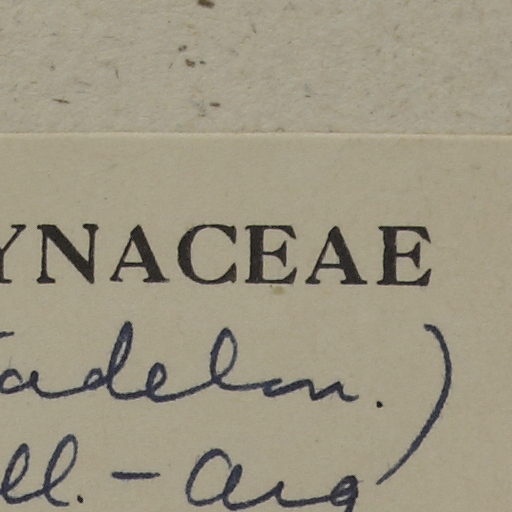 YNACEAE
adelon.)
ell. - Arg